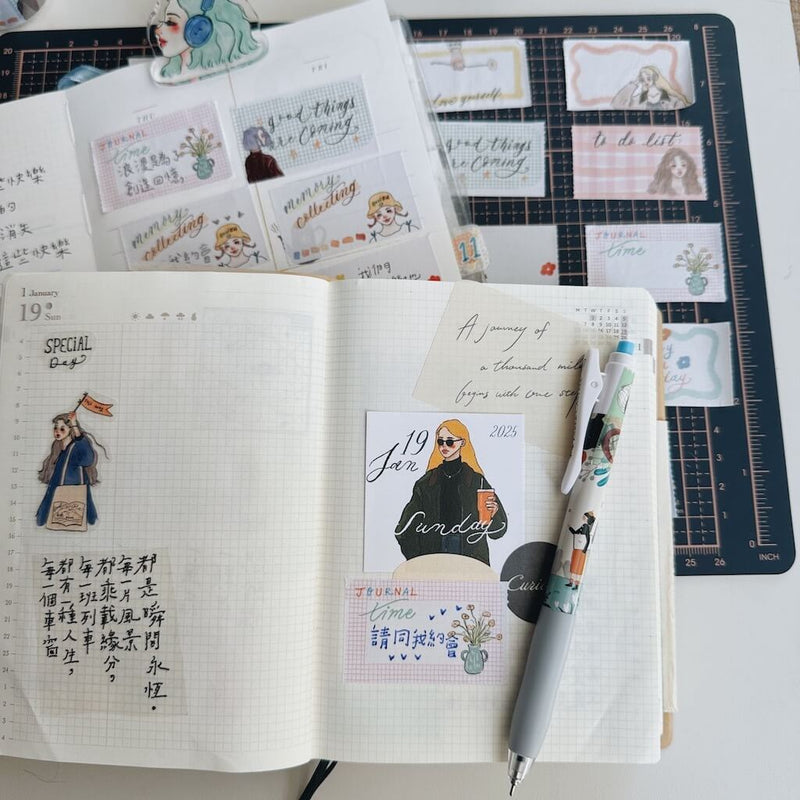 些快樂
的
消失
這些快樂
THU
FRI
JOURNAL
time
浪漫是為
創造回憶
good things
are Coming
memory
collecting
memory
collecting
我的會
我們
11
love yourself
good things
are Coming
to do list
JOURNAL
time
INCH
1 January
19 Sun
SPECiAL
Day
每一個車窗
都有一種人生，
每一班列車
都乘載緣分，
每一片風景
都是瞬間永恆。
M T W T F S S
A journey of
a thousand mil
begins with one step
19
Jan
2025
Sunday
Curi
JOURNAL
time
請同我約會